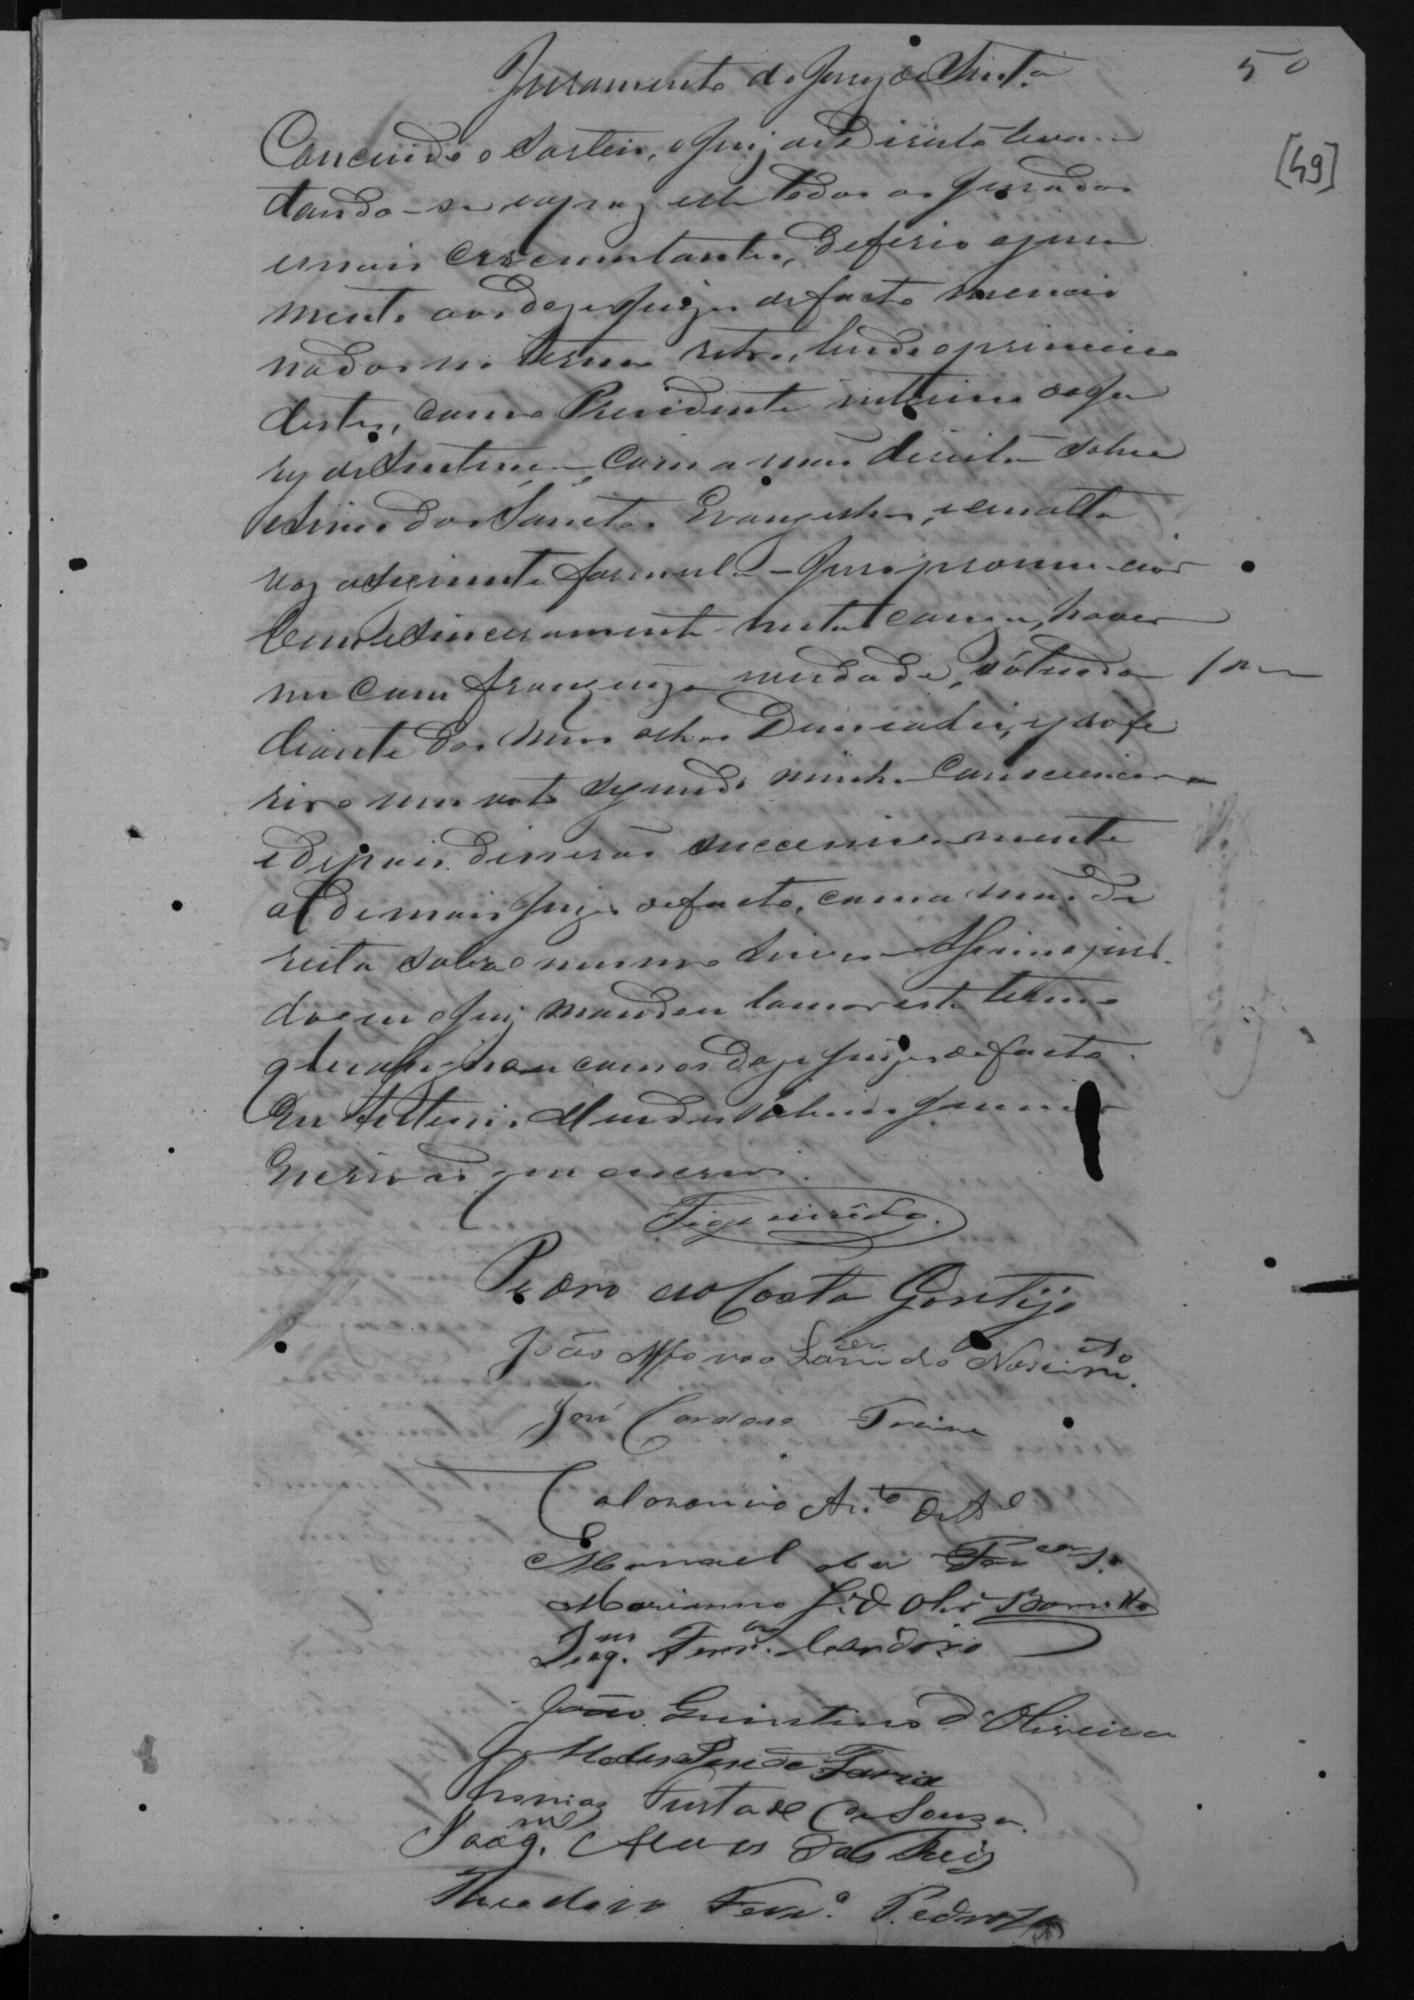 50
[49]
Juramento do Jury de Sent.ª
Concluido o sorteio, o Juiz de Direito levan
tando-se e apoz elle todos os Jurados
e mais circumstantes, deferio o jura
mento aos doze Juizes de facto mencio
nados no termo retro, lendo o primeiro
destes, como Presidente interino do Ju
ry de Sentença, com a mão direita sobre
o livro dos Sanctos Evangelhos, e em alta
voz a seguinte formula - Juro pronunciar
bem e sinceramente nesta causa, haver
me com franqueza e verdade, só tendo
diante dos meus olhos Deus e a lei, e profe
rir o meu voto segundo minha Consciencia
e depois disserão successivamente
os demais Juizes de facto, com a mão di
reita sobre o mesmo livro - Assim o juro.
do que o Juiz mandou lavrar este termo
q' leu e assignou com os doze Juizes de facto.
Eu Antonio Mendes Junior
Escrivão que escrevi.
Figueirêdo.
Pedro da Costa Gontijo
João Affonso Lamounier
José Cardoso
Calorancio An.to de
Manoel da
Marianno J.e d'Oliv.ª
Joaq.m Ferr.ª Cardoso
João Quintino d'Oliveira
de Faria
Thomaz Furtado de Souza
Joaq.m Alves dos Reis
Theodoro Ferr.ª Pedroza